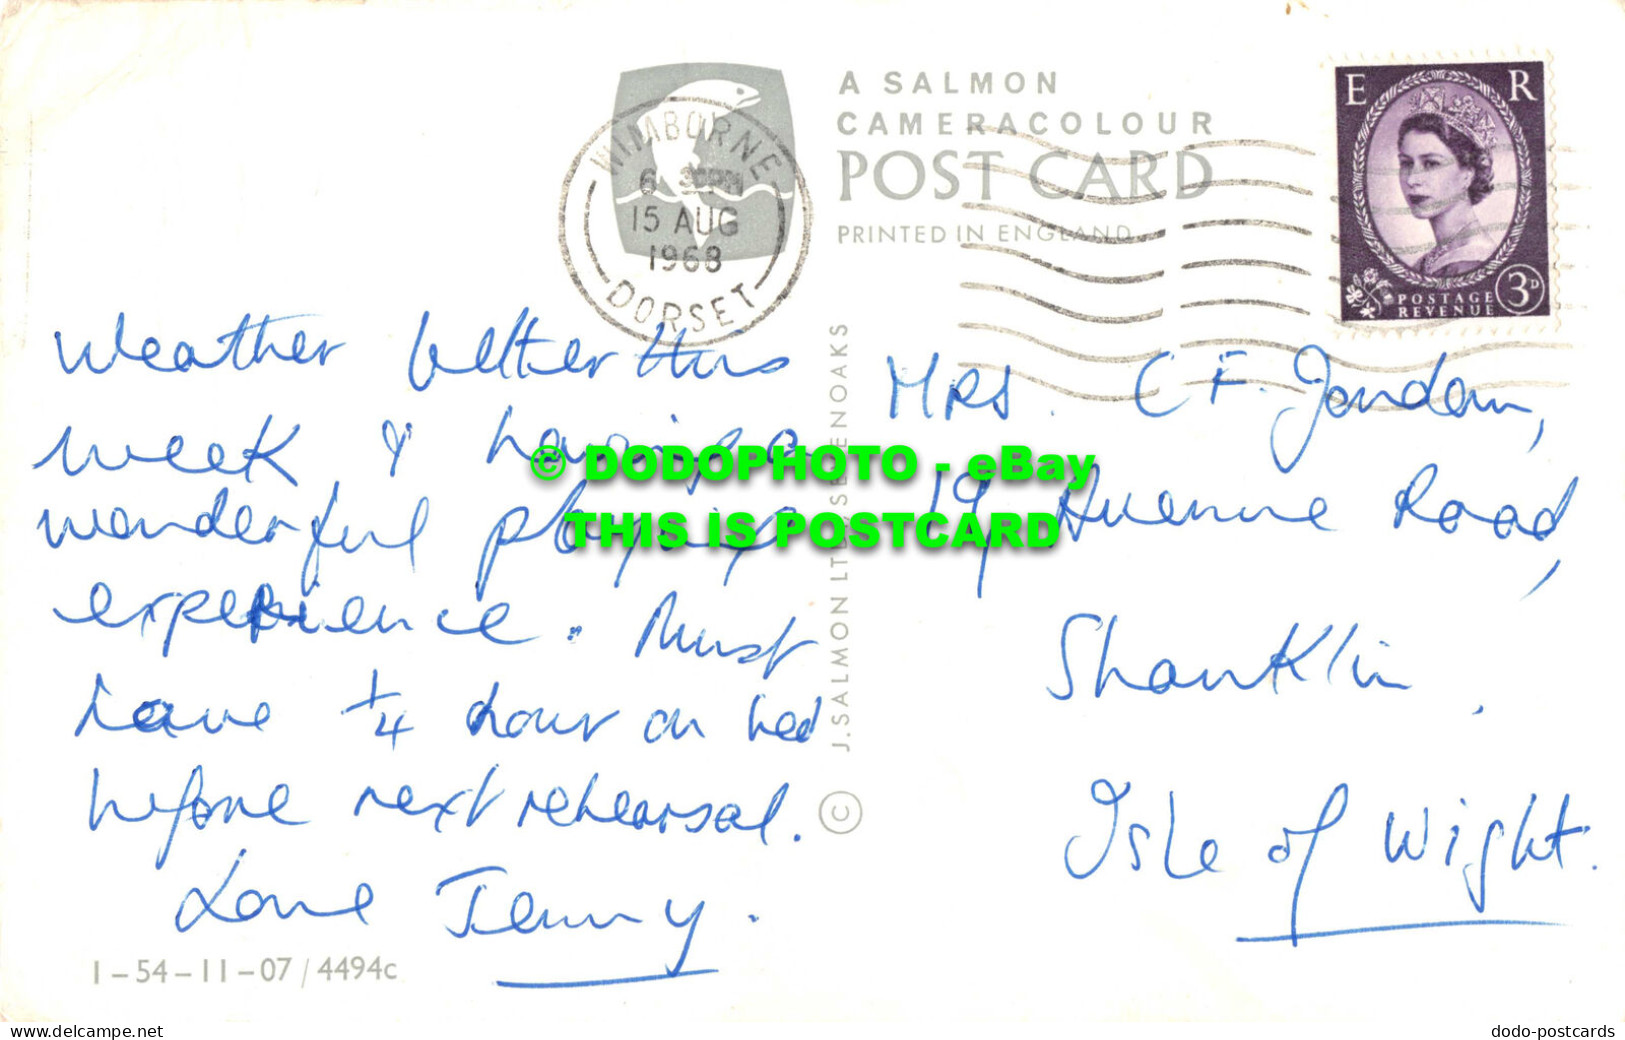 A SALMON
CAMERACOLOUR
POST CARD
PRINTED IN ENGLAND
WIMBORNE
6 30PM
15 AUG
1968
DORSET
E R
POSTAGE
REVENUE
3D
Weather better this
week & having a
wonderful playing
experience. Must
have 1/4 hour on bed
before next rehearsal.
Love Jenny.
Mrs. C F. Jordan,
19 Avenue Road,
Shanklin,
Isle of Wight.
© J. SALMON LTD., SEVENOAKS
© DODOPHOTO - eBay
THIS IS POSTCARD
1-54-11-07/4494c
www.delcampe.net
dodo-postcards